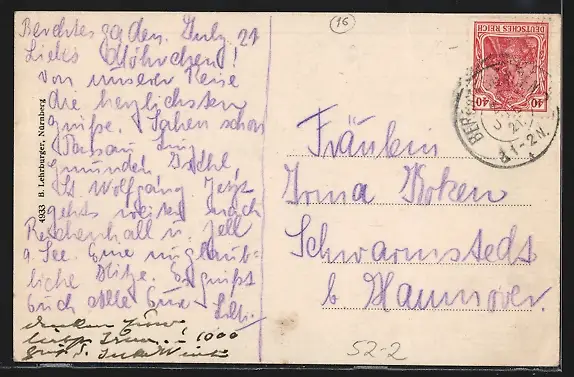 Berchtesgaden. July. 21
Liebes Möhrchen!
Von unserer Reise
die herzlichsten
Grüße. Sahen schon
Passau Linz
Gmunden Ischl
St Wolfgang Jetzt
gehts weiter nach
Reichenhall u. Zell
a. See. Eine unglaub-
liche Hitze. Es grüßt
Euch alle Eure Lilli.
1000
4933 B. Lehrburger, Nürnberg
16
DEUTSCHES REICH
40 40
BER
21
1-2 N.
Fräulein
Irma Koken
Schwarmstedt
b Hannover.
52-2